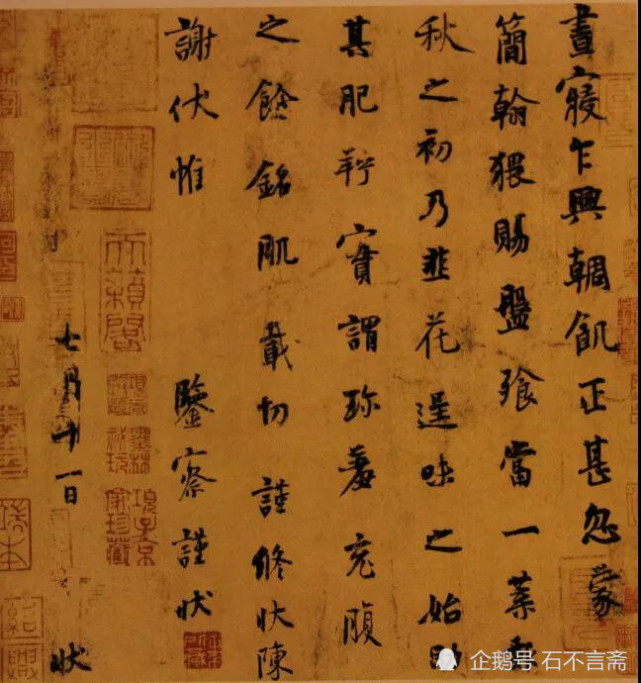 晝寢乍興輖飢正甚忽蒙
簡翰猥賜盤飧當一葉報
秋之初乃韭花逞味之始助
其肥羜實謂珎羞充腹
之餘銘肌載切謹修狀陳
謝伏惟 鑒察謹狀
七月十一日 狀
墨林祕玩
項子京家珍藏
企鹅号 石不言斋